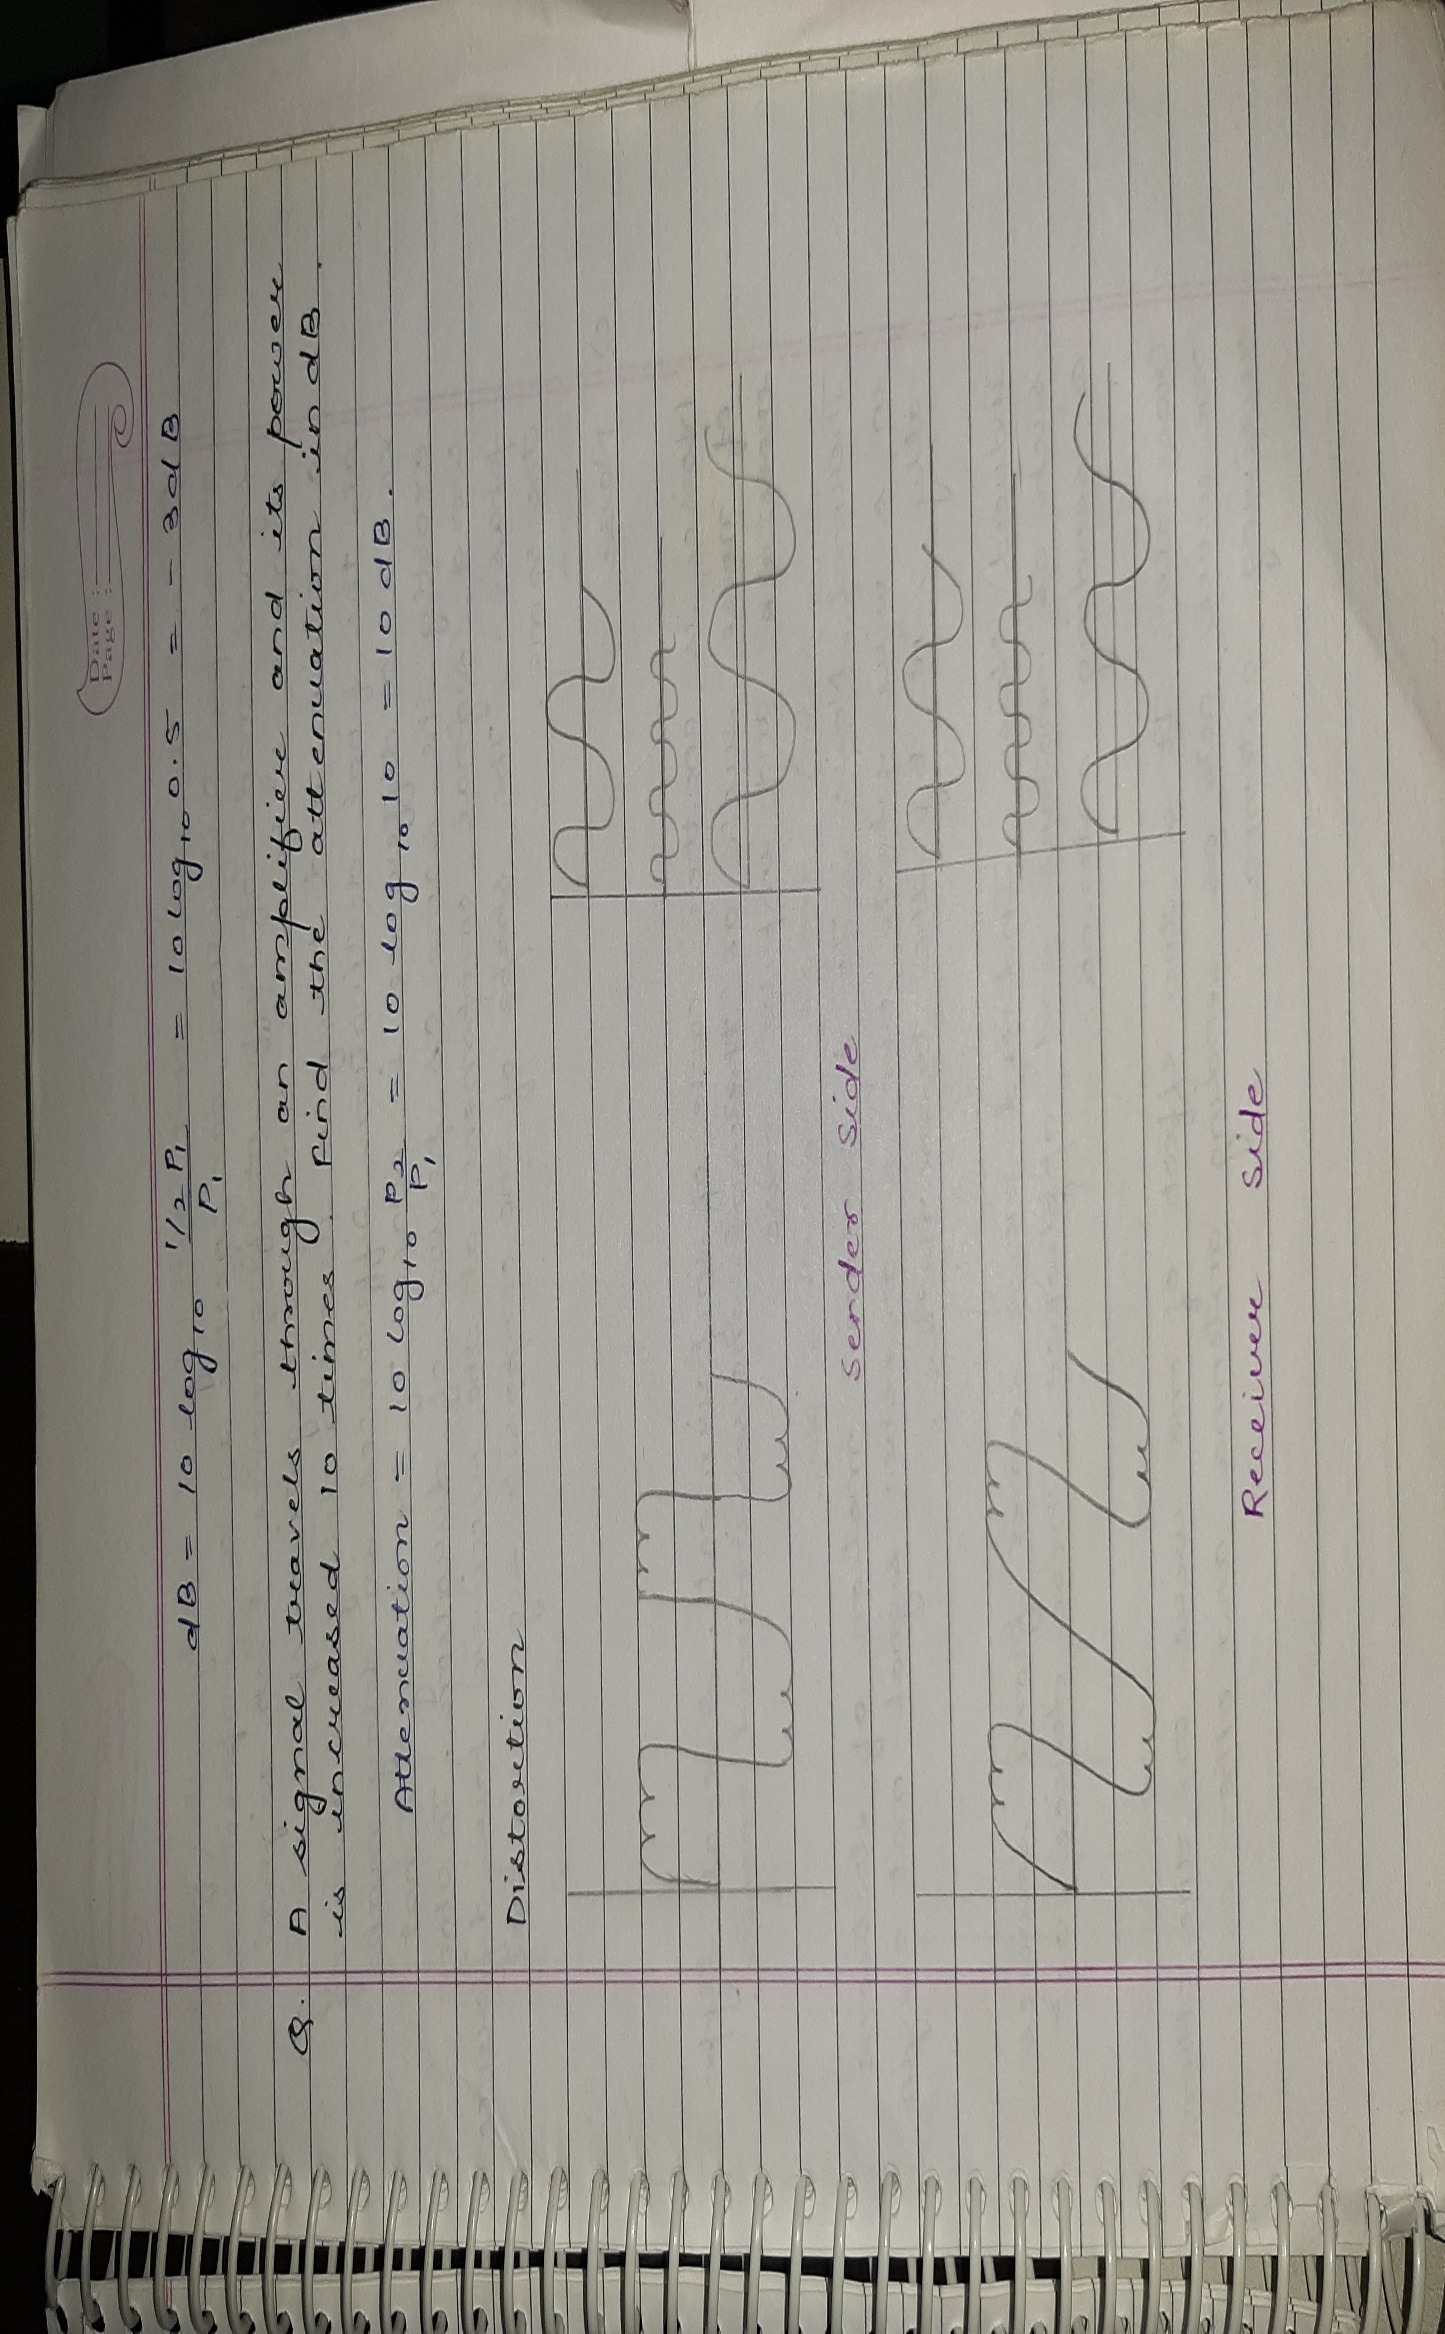 Date :
Page :
dB = 10 log₁₀ 1/2 P₁ / P₁ = 10 log₁₀ 0.5 = - 3dB
Q. A signal travels through an amplifier and its power
is increased 10 times. Find the attenuation in dB.
Attenuation = 10 log₁₀ P₂ / P₁ = 10 log₁₀ 10 = 10 dB.
Distortion
Sender Side
Receiver Side